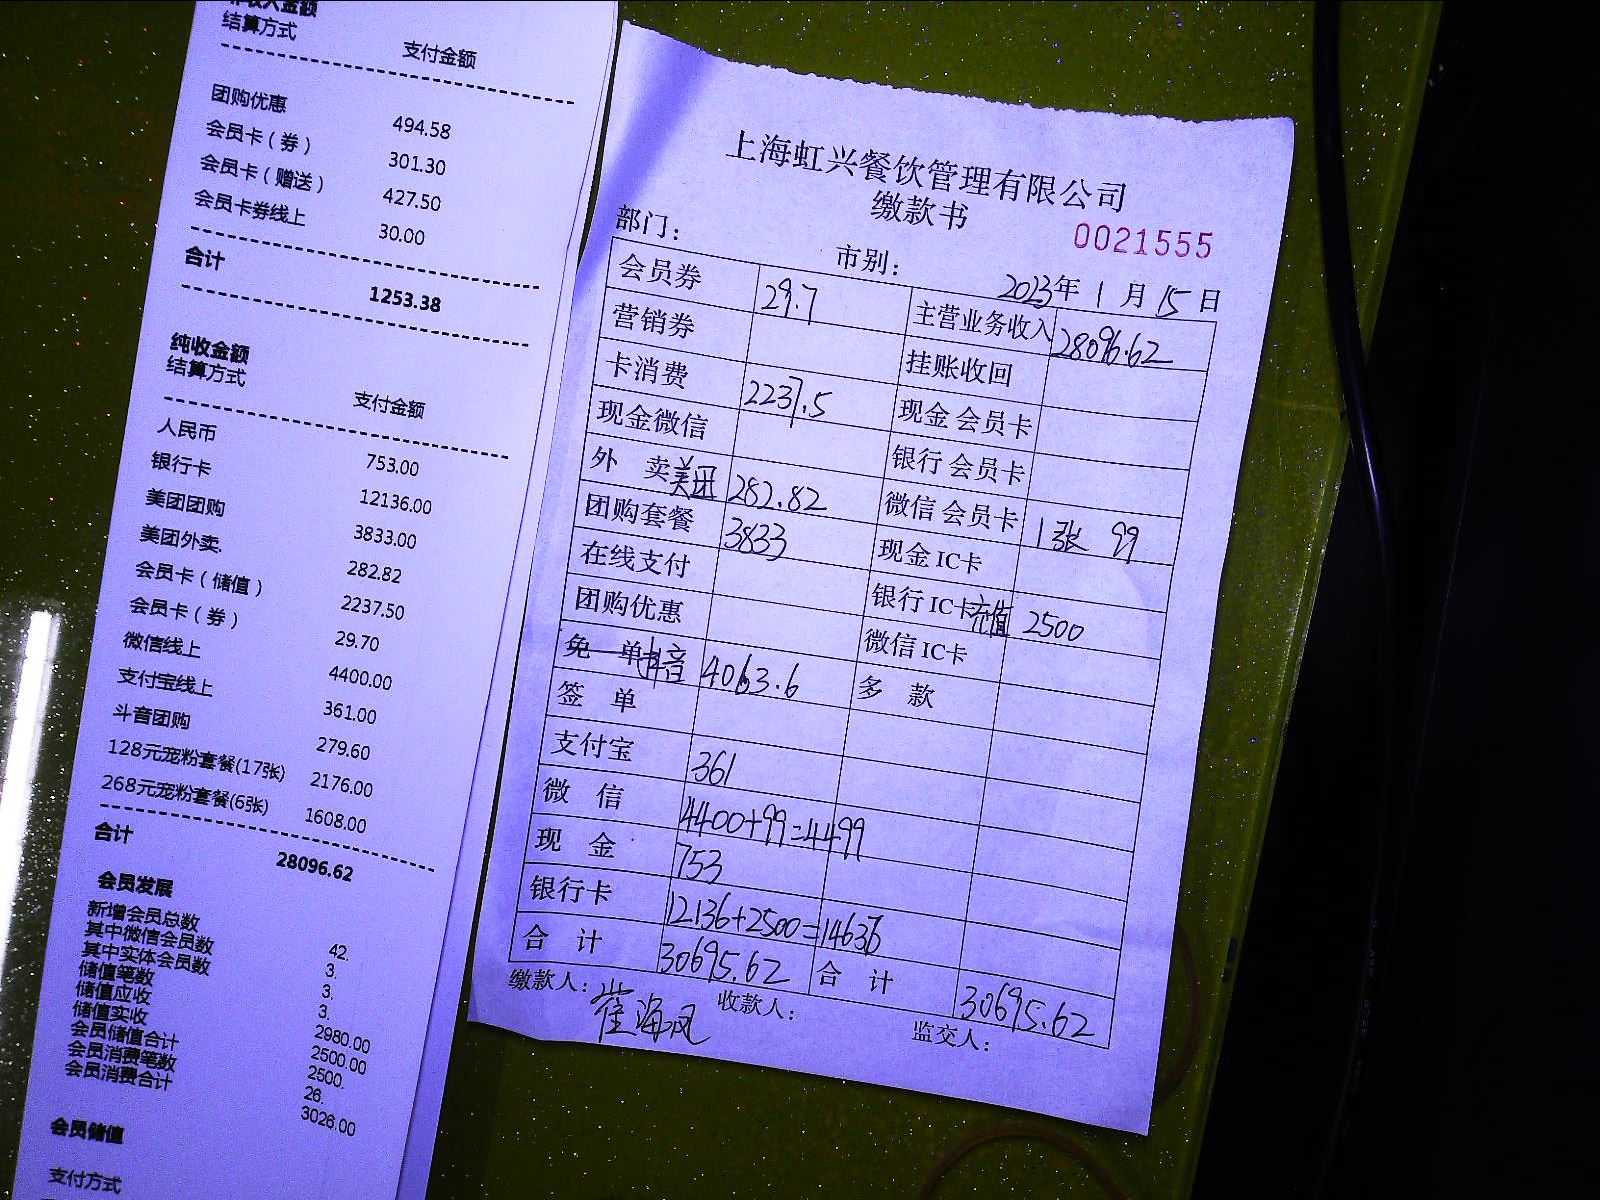 结算方式
支付金额
团购优惠 494.58
会员卡（券） 301.30
会员卡（赠送） 427.50
会员卡券线上 30.00
合计 1253.38
纯收金额
结算方式 支付金额
人民币 753.00
银行卡 12136.00
美团团购 3833.00
美团外卖. 282.82
会员卡（储值） 2237.50
会员卡（券） 29.70
微信线上 4400.00
支付宝线上 361.00
斗音团购 279.60
128元宠粉套餐(17张) 2176.00
268元宠粉套餐(6张) 1608.00
合计 28096.62
会员发展
新增会员总数 42.
其中微信会员数 3.
其中实体会员数 3.
储值笔数 3.
储值应收 2980.00
储值实收 2500.00
会员储值合计 2500.
会员消费笔数 26.
会员消费合计 3026.00
会员储值
支付方式
上海虹兴餐饮管理有限公司
缴款书
0021555
部门： 市别： 2023年 1 月 15 日
会员券 29.7 主营业务收入 28096.62
营销券 挂账收回
卡消费 2237.5 现金 会员卡
现金微信 银行 会员卡
外 卖 美团 282.82 微信 会员卡 1张 99
团购套餐 3833 现金 IC卡
在线支付 银行 IC卡 充值 2500
团购优惠 微信 IC卡
免 单 抖音 4063.6 多 款
签 单
支付宝 361
微 信 4400+99=4499
现 金 753
银行卡 12136+2500=14636
合 计 30695.62 合 计 30695.62
缴款人： 崔海凤 收款人： 监交人：